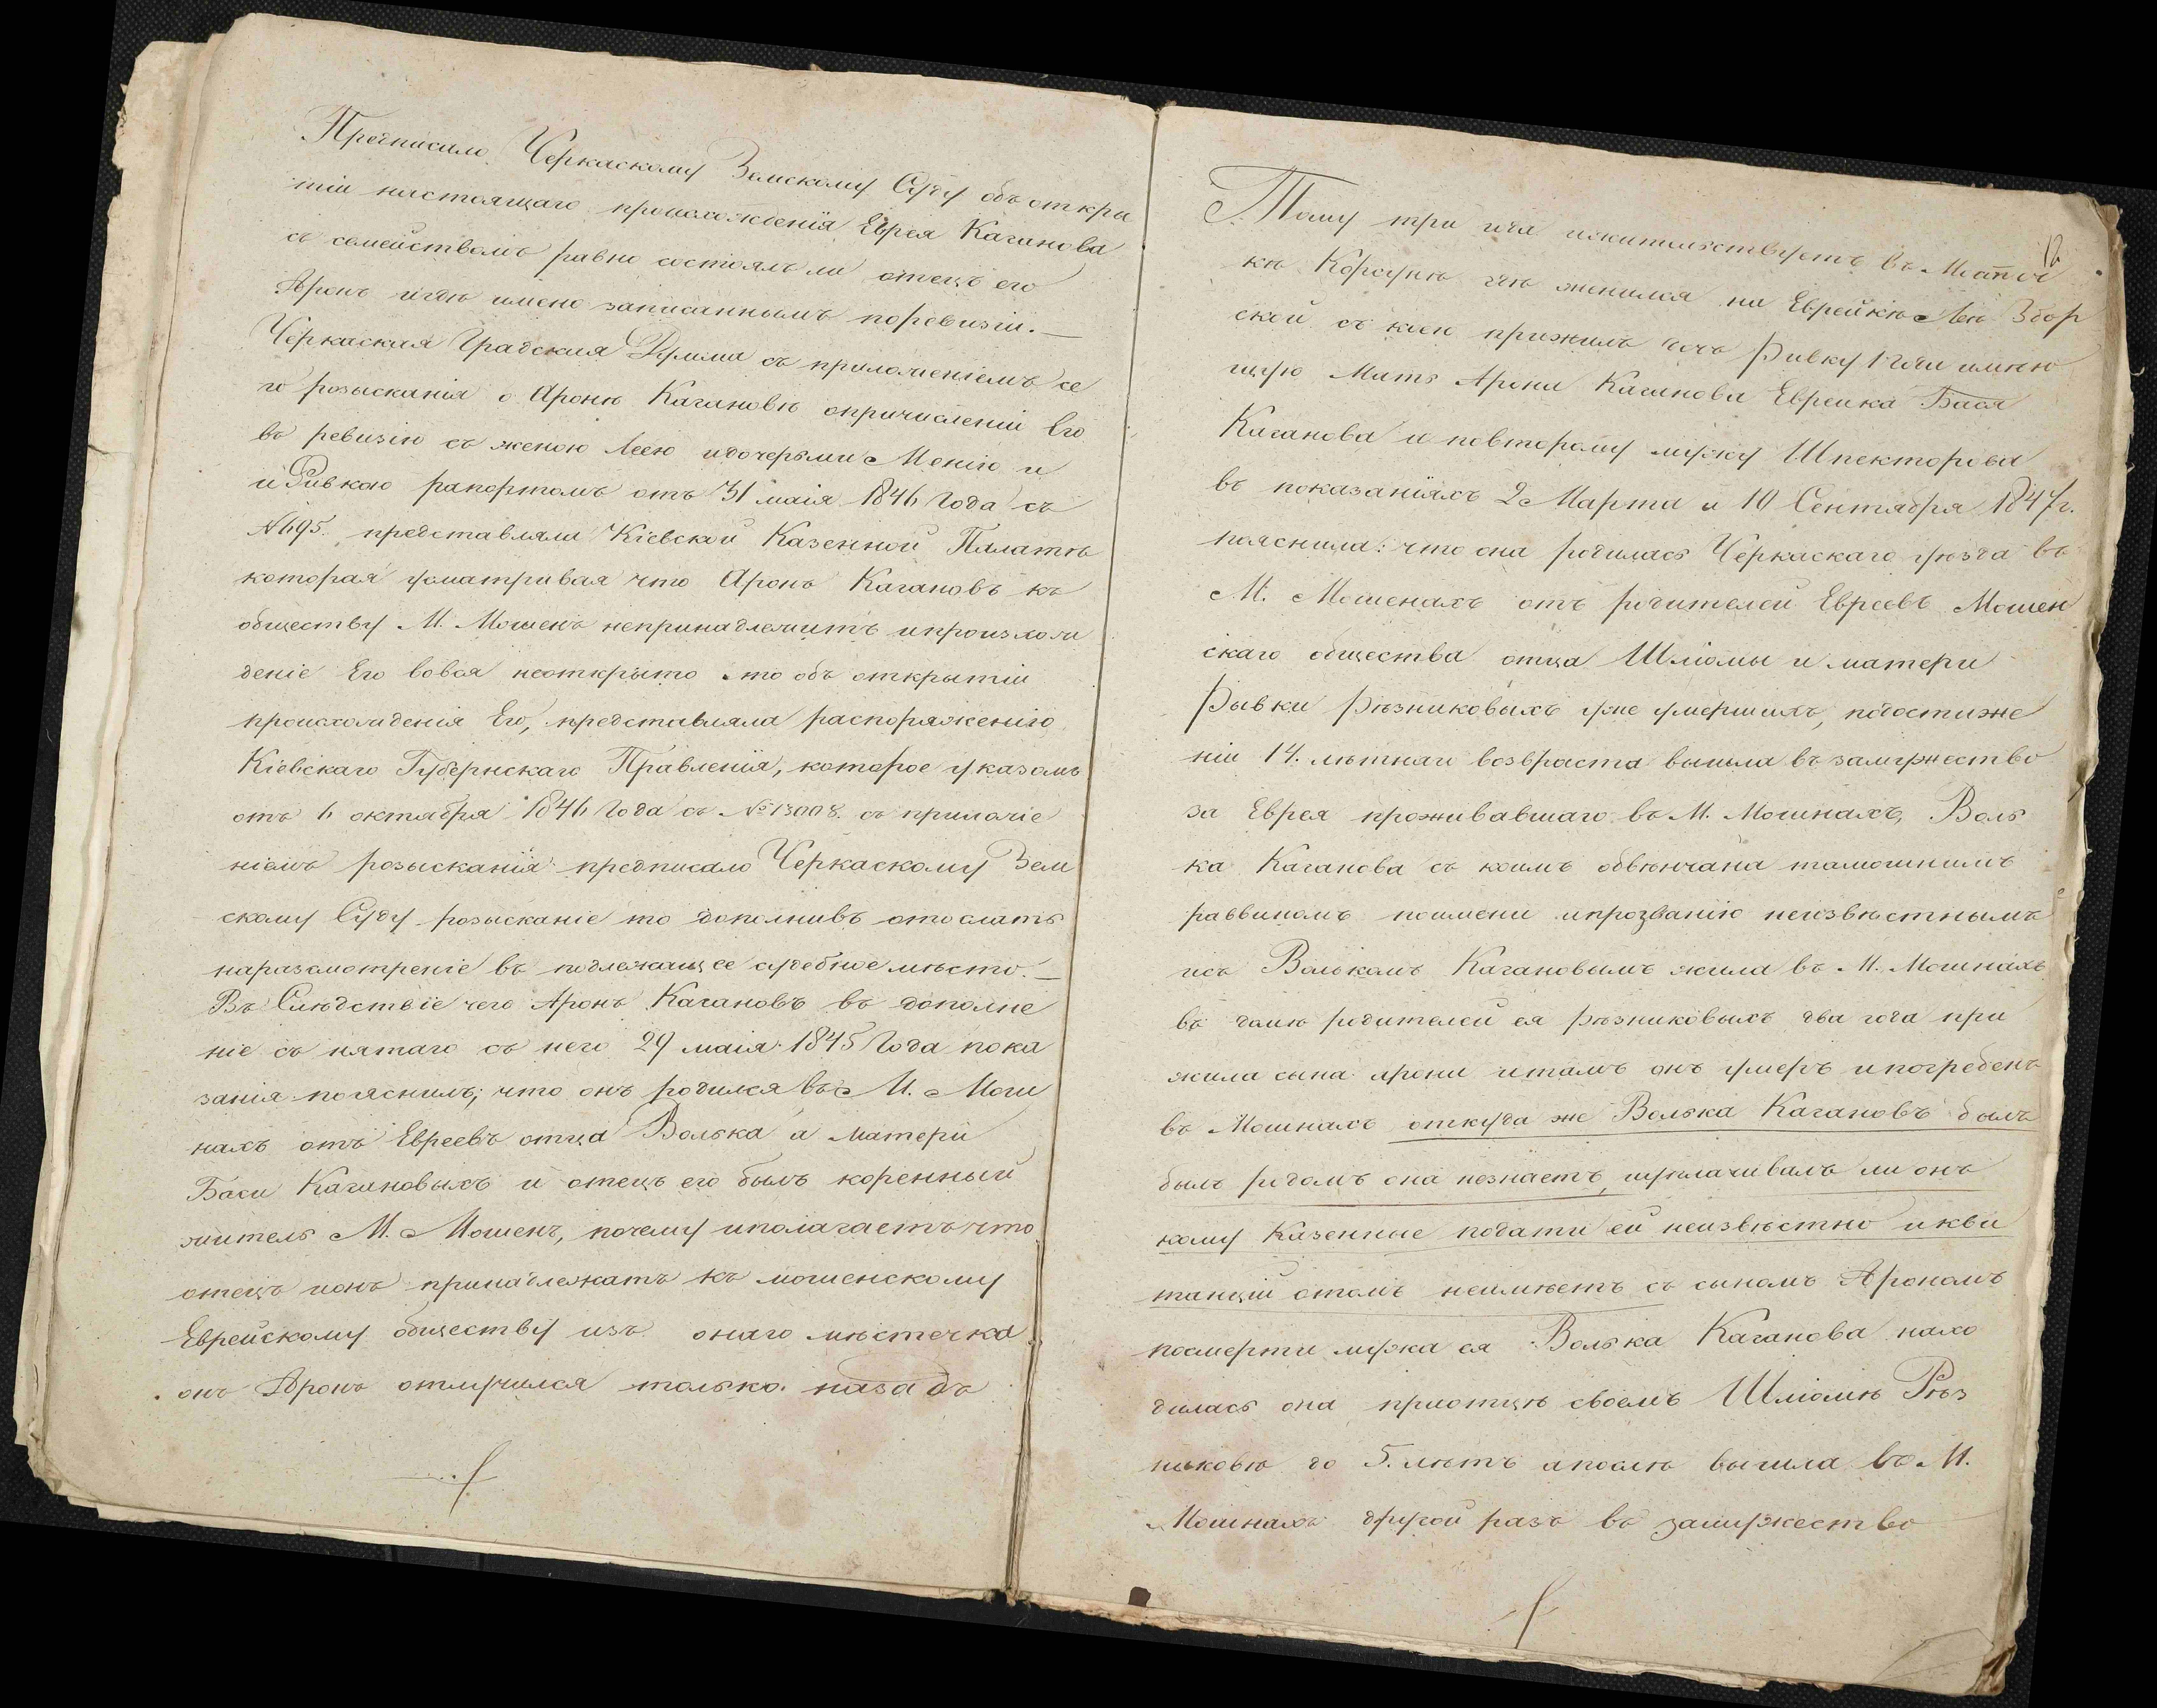 Предписало Черкаскому Земскому Суду объ откры
тіи настоящаго происхожденія Еврея Каганова
съ семействомъ равно состоялъ ли отецъ его
Аронъ игдѣ имено записаннымъ поревизіи.—
Черкаская Градская Дума съ приложеніемъ се
го розысканія о Аронѣ Кагановѣ опричисленіи Его
въ ревизію съ женою Леею идочерьми Менію и
и Ривкою рапортомъ отъ 31 маія 1846 Года съ
№695. представляла Кіевской Казенной Палатѣ
которая усматривая что Аронъ Кагановъ къ
обществу М. Мошенъ непринадлежитъ ипроизхож
деніе Его вовся неоткрыто то объ открытіи
происхожденія Его, представляла распоряженію
Кіевскаго Губернскаго Правленія, которое указомъ
отъ 6 октября 1846 Года съ №13008. съ приложе
ніемъ розысканія предписало Черкаскому Зем
скому Суду розысканіе то дополнивъ отослать
наразсмотреніе въ подлежащее судебное мѣсто.—
Въ Слѣдствіе чего Аронъ Кагановъ въ дополне
ніе съ нятаго съ него 29 маія 1845 Года пока
занія пояснилъ; что онъ родился въ М. Мош
нахъ отъ Евреевъ отца Волька а матери
Баси Кагановыхъ и отецъ его былъ коренный
житель М. Мошенъ, почему иполагаетъ что
отецъ ионъ принадлежатъ къ мошенскому
Еврейскому обществу изъ онаго мѣстечка
онъ Аронъ отлучился только назадъ
12
Тому три года ижительствуетъ въ Мѣстеч
кѣ Корсунѣ гдѣ женился на Еврейкѣ Леѣ Збор
ской съ коею прижилъ дочь Рывку 1 годъ имѣю
щую Мать Арона Каганова Еврейка Бася
Каганова и повторому мужу Шпекторова
въ показаніяхъ 2 Марта и 10 Сентября 1847г.
пояснила: что она родилась Черкаскаго уѣзда въ
М. Мошенахъ отъ родителей Евреевъ Мошен
скаго общества отца Шліомы и матери
Рывки Рѣзниковыхъ уже умершихъ, подостиже
ніи 14. лѣтняго возвраста вышла въ замужество
за Еврея проживавшаго въ М. Мошнахъ, Воль
ка Каганова съ коимъ обвѣнчана тамошнимъ
раввиномъ поимени ипрозванію неизвѣстнымъ
исъ Волькомъ Кагановымъ жила въ М. Мошнахъ
въ домѣ родителей ея Рѣзниковыхъ два года при
жила сына Арона итамъ онъ умеръ ипогребенъ
въ Мошнахъ откуда же Волька Кагановъ былъ
былъ родомъ она незнаетъ, иуплачивалъ ли онъ
кому Казенные подати ей неизвѣстно икви
танціи отомъ неимѣетъ съ сыномъ Арономъ
посмерти мужа ея Волька Каганова нахо
дилась она приотцѣ своемъ Шліомѣ Рѣз
никовѣ до 5. лѣтъ апослѣ вышла въ М.
Мошнахъ другой разъ въ замужество